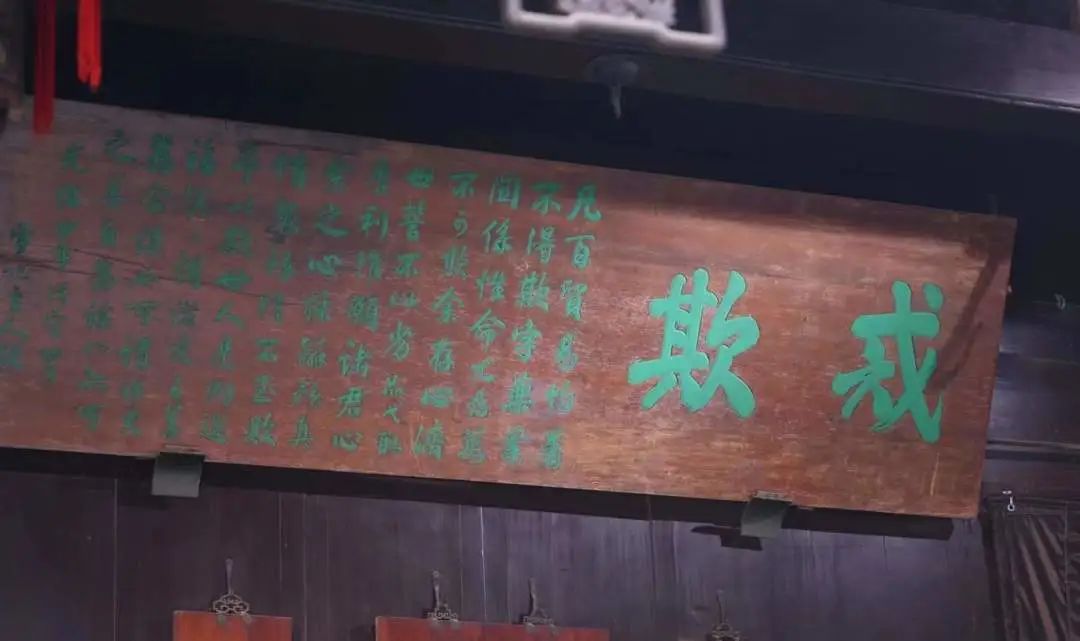 戒欺
凡百貿易均著
不得欺字藥業
關係性命尤為萬
不可欺余存心濟
世誓不以劣品弋取
厚利惟願諸君心
余之心採辦務真
修製務精不至欺
予以欺世人是則造
福冥冥謂諸君之善
為余謀也可謂諸君
之善自為謀也亦可
光緒四年
雪記主人跋